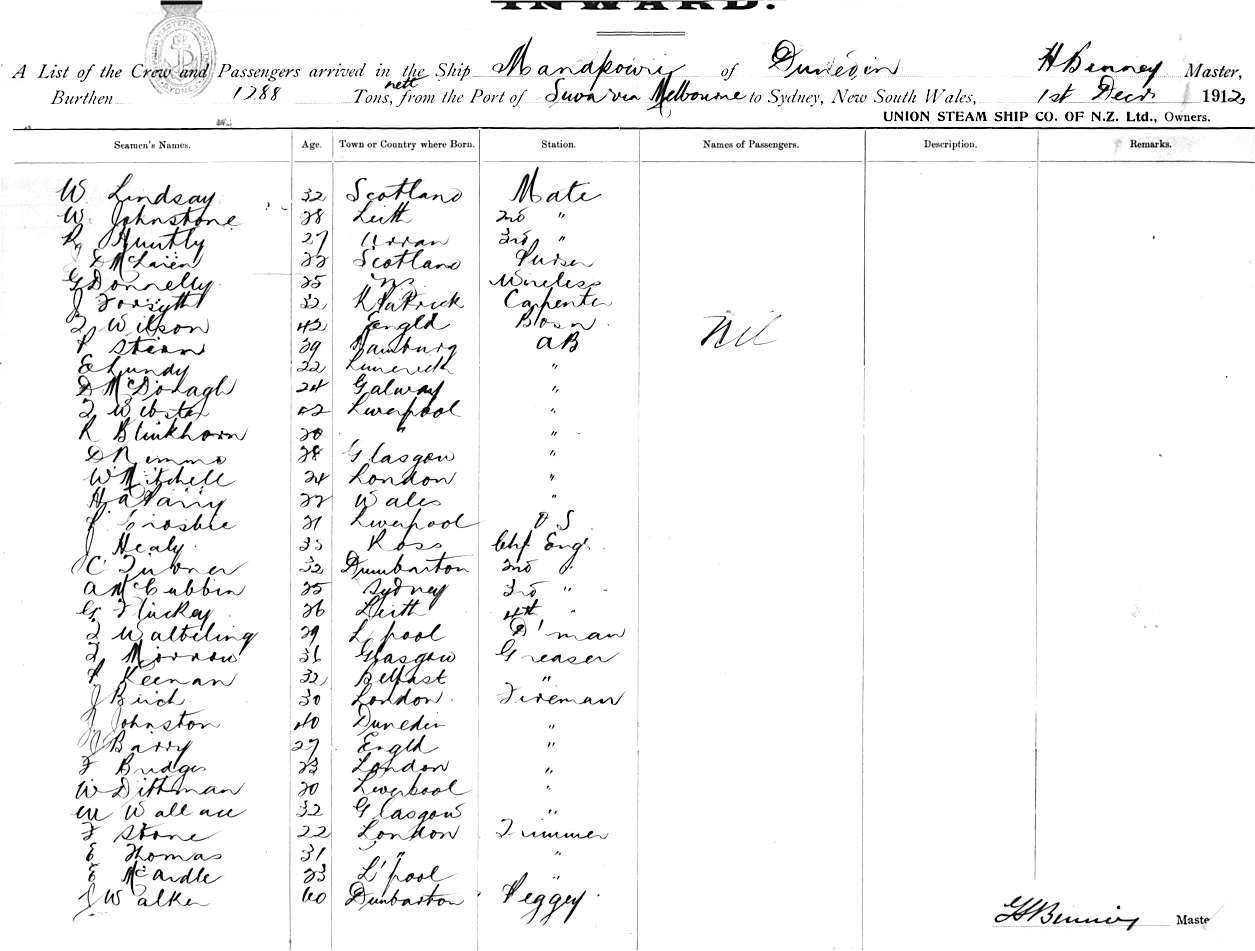 INWARD.
A List of the Crew and Passengers arrived in the Ship Manapouri of Dunedin H Benney Master,
Burthen 1288 nett Tons, from the Port of Suva via Melbourne to Sydney, New South Wales, 1st Decr 1912
UNION STEAM SHIP CO. OF N.Z. Ltd., Owners.
Seamen's Names. Age. Town or Country where Born. Station. Names of Passengers. Description. Remarks.
W Lindsay 32 Scotland Mate
W. Johnstone 28 Leith 2nd "
R Huntly 27 Arran 3rd "
D McLaren 22 Scotland Purser
G Donnelly 25 Wireless
J Forsyth 32 Carpenter
Wilson 42 Engld Bosn
P Stern 39 Hamburg AB Nil
E Lundy 22 Limerick "
D McDonagh 24 Galway "
Webster Liverpool "
R Blinkhorn 20 " "
D Nimmo 28 Glasgow "
W Mitchell 24 London "
H A Parry 22 Wales "
Crosbie 21 Liverpool O S
J Healy 35 Ross Chf Eng.
C Turner 32 Dumbarton 2nd "
A McCubbin 25 Sydney 3rd "
G Hickey 26 Leith 4th "
29 L'pool D'man
Morrow 36 Glasgow Greaser
P Keenan 32 Belfast "
J Birch 30 London Fireman
J Johnston 40 Dunedin "
J Barry 27 Engld "
F Bridges 23 London "
W Dittman 20 Liverpool "
M Wallace 32 Glasgow "
F Stone 22 London Trimmer
E Thomas 31 " "
E McArdle 23 L'pool "
J Walker 60 Dunbarton Peggey
H Benney Master